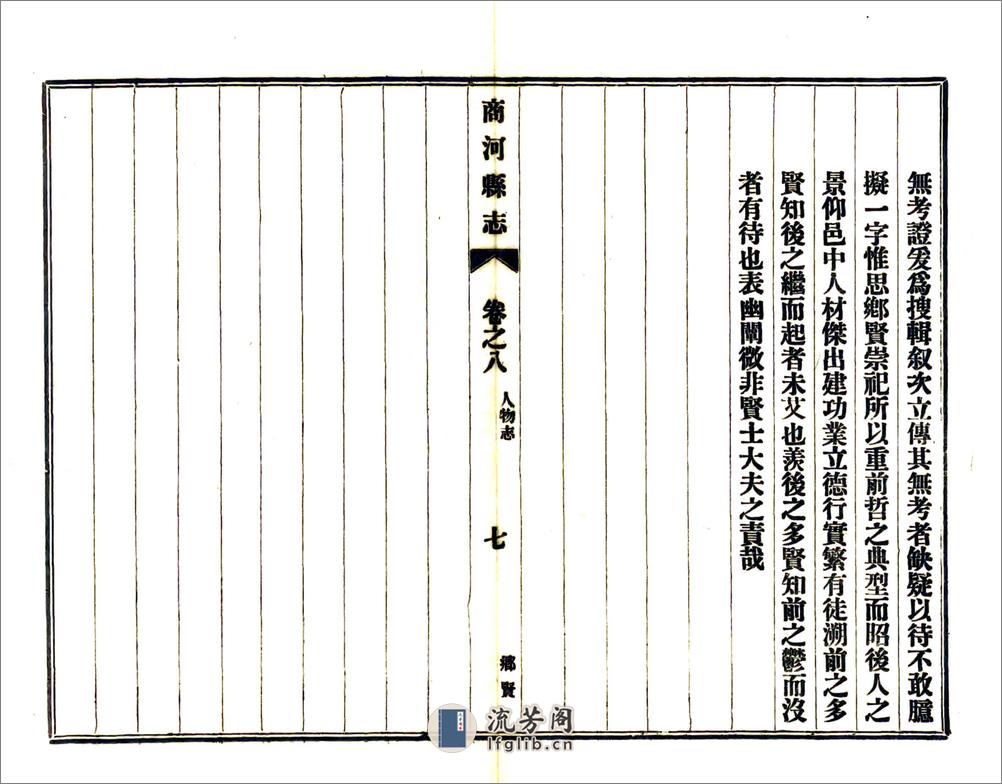 無考證爰爲搜輯叙次立傳其無考者缺疑以待不敢臆
擬一字惟思鄉賢崇祀所以重前哲之典型而昭後人之
景仰邑中人材傑出建功業立德行實繁有徒溯前之多
賢知後之繼而起者未艾也羨後之多賢知前之鬱而沒
者有待也表幽闡微非賢士大夫之責哉
商河縣志
卷之八
人物志
七
鄉賢
流芳阁
lfglib.cn